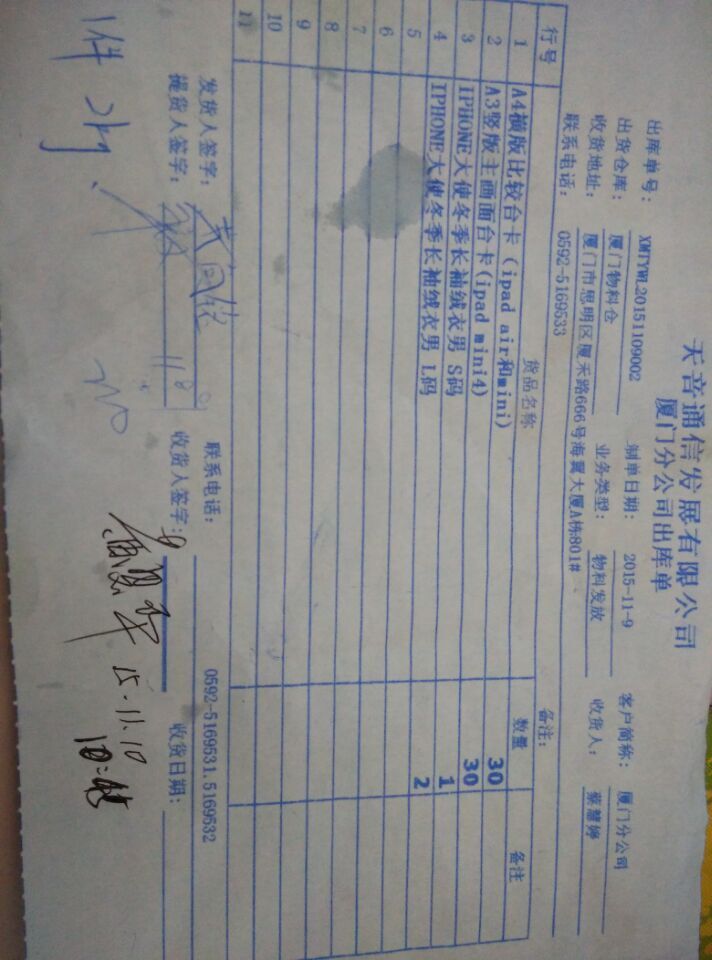 天音通信发展有限公司
厦门分公司出库单
出库单号: XMTYWL20151109002 制单日期: 2015-11-9 客户简称: 厦门分公司
出货仓库: 厦门物料仓 业务类型: 物料发放 收货人: 蔡慧婷
收货地址: 厦门市思明区厦禾路666号海翼大厦A栋801#
联系电话: 0592-5169533 备注:
行号 货品名称 数量 备注
1 A4横版比较台卡（ipad air和mini） 30
2 A3竖版主画面台卡(ipad mini4) 30
3 IPHONE大使冬季长袖绒衣男 S码 1
4 IPHONE大使冬季长袖绒衣男 L码 2
5
6
7
8
9
10
11
联系电话: 0592-5169531.5169532
发货人签字: 收货人签字: 收货日期:
提货人签字:
15.11.10
1件 2kg